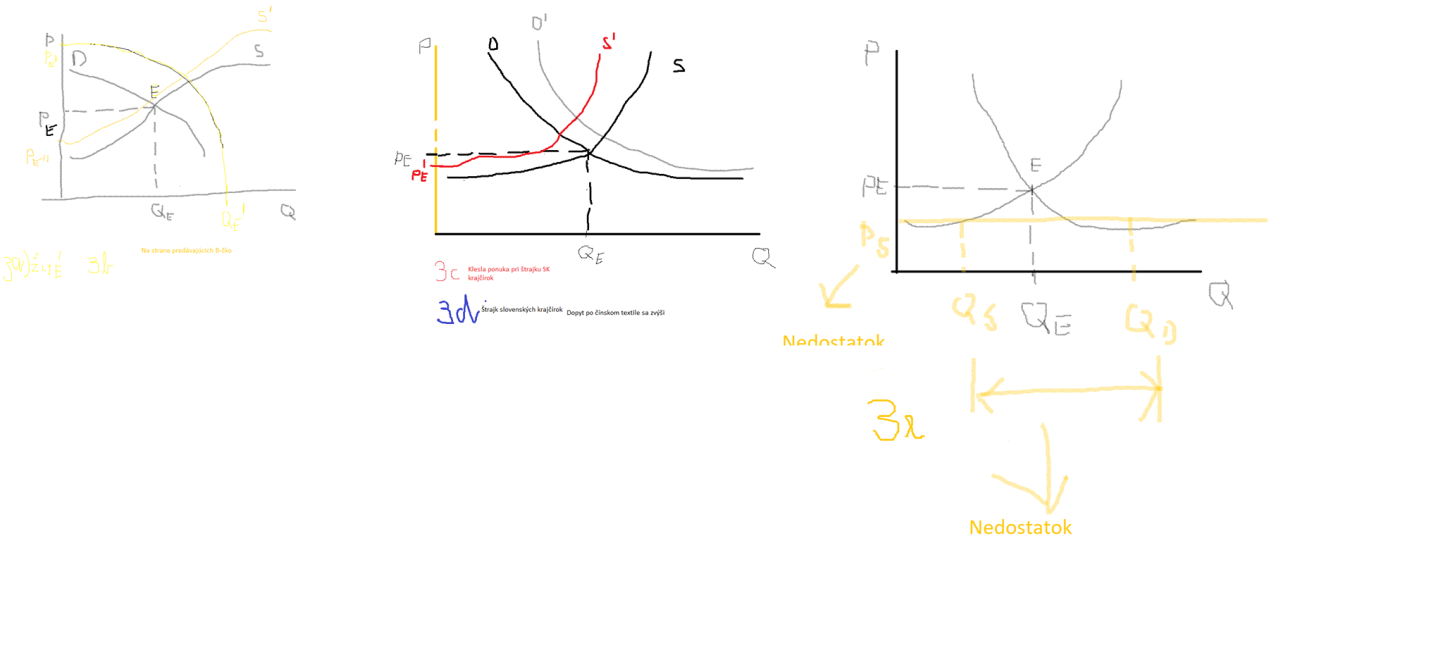 S'
P
P'
D
S
E
PE
PE''
QE
QE'
Q
Na strane predávajúcich B-žko
3b
P
D
D'
S'
S
PE
PE'
QE
Q
3c
Klesla ponuka pri štrajku SK
krajčírok
3d
Štrajk slovenských krajčírok
Dopyt po čínskom textile sa zvýši
P
E
PE
PS
Q
QS
QE
QD
Nedostatok
Nedostatok